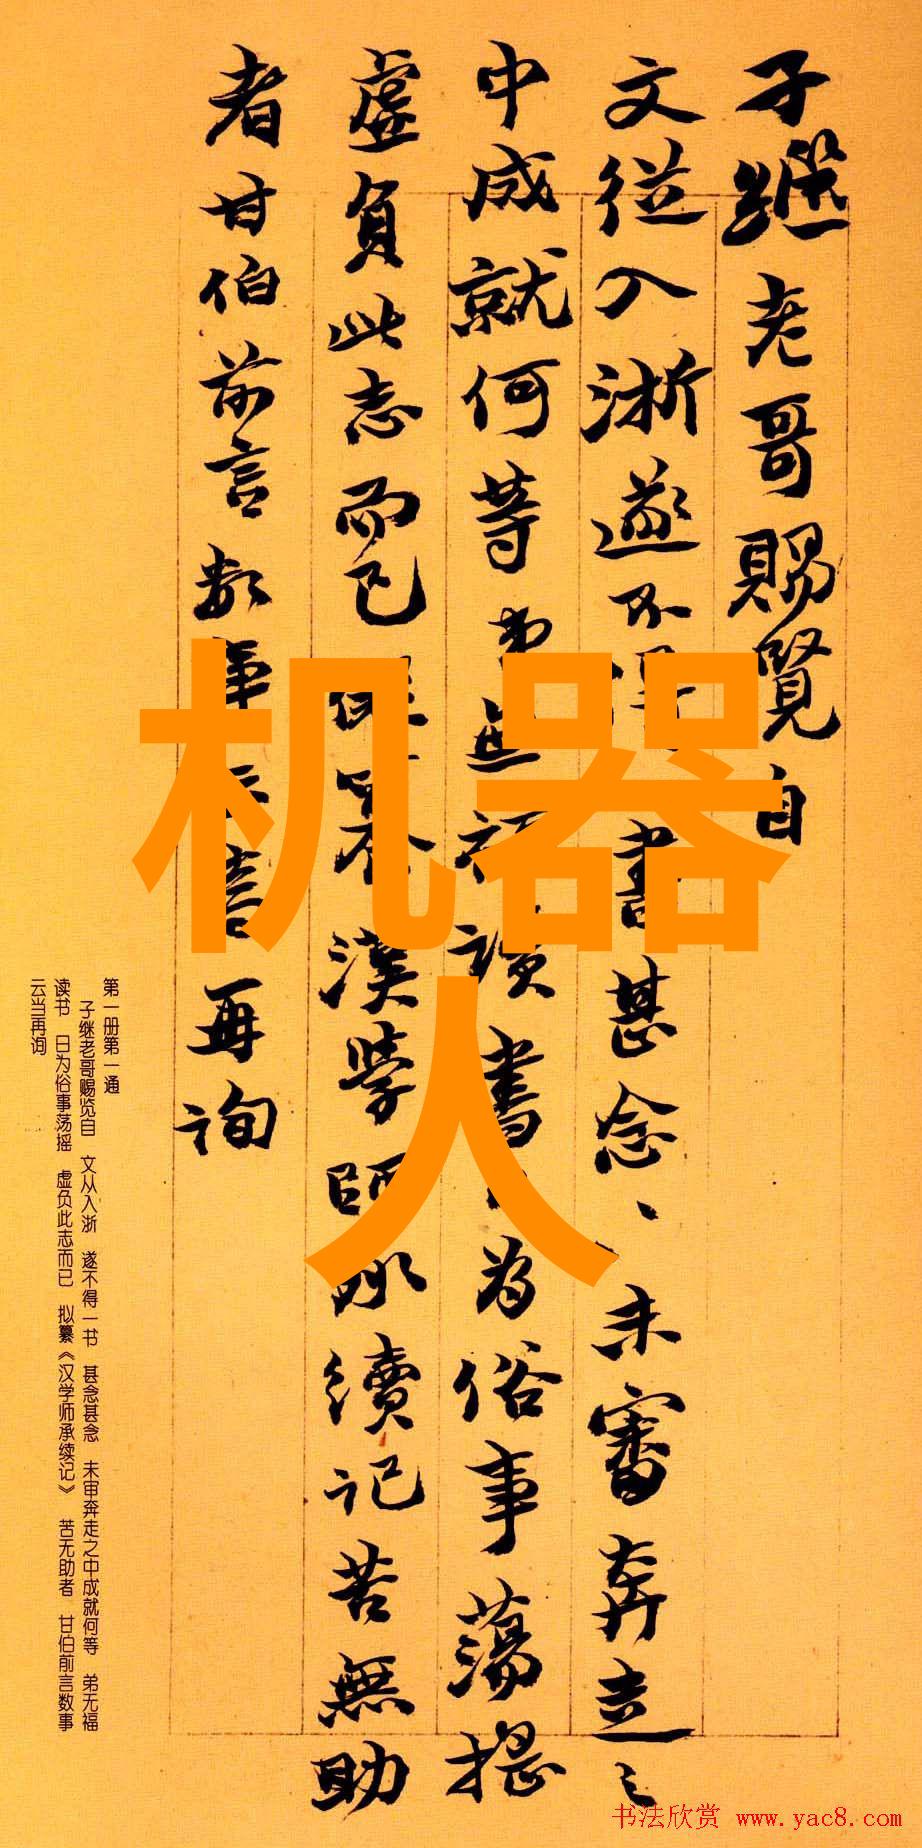 子繼老哥賜覽自
文從入浙遂不得書甚念、、未審奔走之
中成就何等弟無福讀書、為俗事蕩搖
虛負此志而已漢學師承續記苦無助
者甘伯前言數事云當再詢
机器
人
第一册第一通
子继老哥赐览自 文从入浙 遂不得一书 甚念甚念 未审奔走之中成就何等 弟无福
读书 日为俗事荡摇 虚负此志而已 拟纂《汉学师承续记》 苦无助者 甘伯前言数事
云当再询
书法欣赏 www.yac8.com